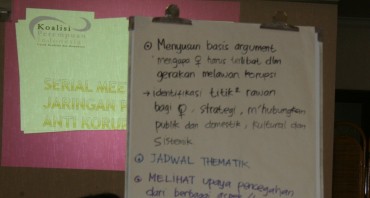 Koalisi
Perempuan
Indonesia
SERIAL MEE
JARINGAN P
ANTI KORUP
Menyusun basis argument
mengapa ♀ harus terlibat dlm
gerakan melawan korupsi
→ identifikasi titik² rawan
bagi ♀. strategi, m'hubungkan
publik dan domestik, kultural dan
Sistemik
JADWAL THEMATIK
MELIHAT upaya pencegahan
dari berbagai